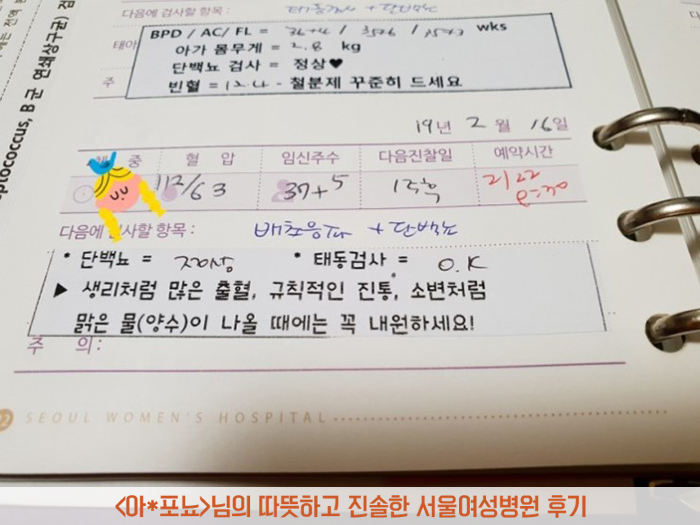 다음에 검사할 항목 : 태동검사 + 단백뇨
BPD / AC/ FL = 36+4 / / wks
태아
아가 몸무게 = 2.8 kg
단백뇨 검사 = 정상♥
주
빈혈 = 12.4 - 철분제 꾸준히 드세요
ptococcus, B군 연쇄상구균)
19년 2월 16일
체 중 혈 압 임신주수 다음진찰일 예약시간
112/63 37+5 1주후 2/22
다음에 검사할 항목 : 배초음파 + 단백뇨
• 단백뇨 = 정상 • 태동검사 = O.K
▶ 생리처럼 많은 출혈, 규칙적인 진통, 소변처럼
맑은 물(양수)이 나올 때에는 꼭 내원하세요!
주 의:
SEOUL WOMEN'S HOSPITAL
<아*포뇨>님의 따뜻하고 진솔한 서울여성병원 후기